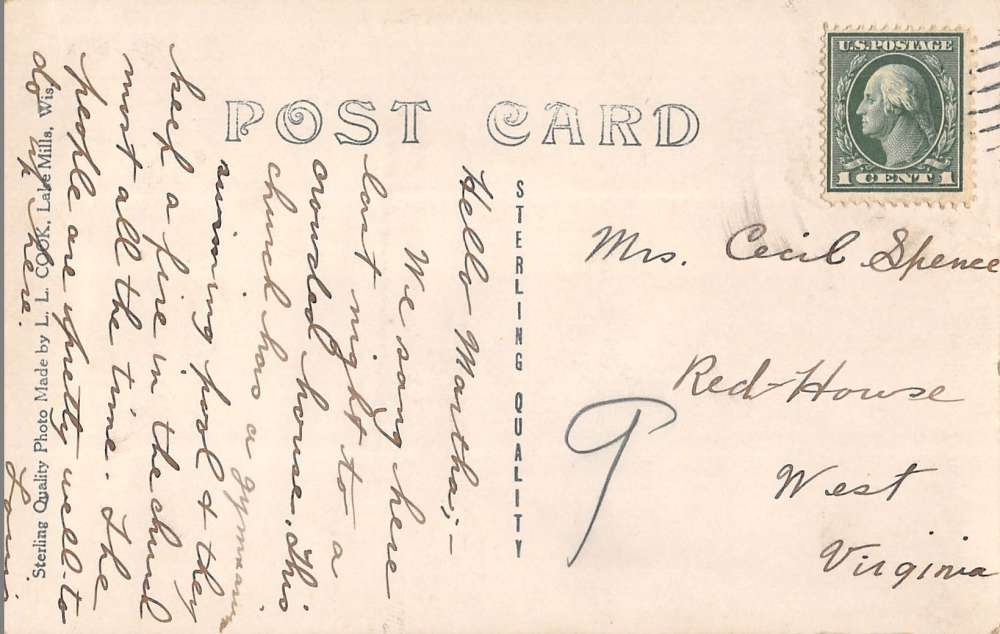 POST CARD
U.S. POSTAGE
1 CENT 1
STERLING QUALITY
Mrs. Cecil Spence
Red-House
West
Virginia
9
Hello Martha;-
We sang here
last night to a
crowded house. This
church has a gymnasium
swimming pool & they
keep a fire in the church
most all the time. The
people are pretty well-to
do up here.
Sterling Quality Photo Made by L. L. COOK, Lake Mills, Wis.